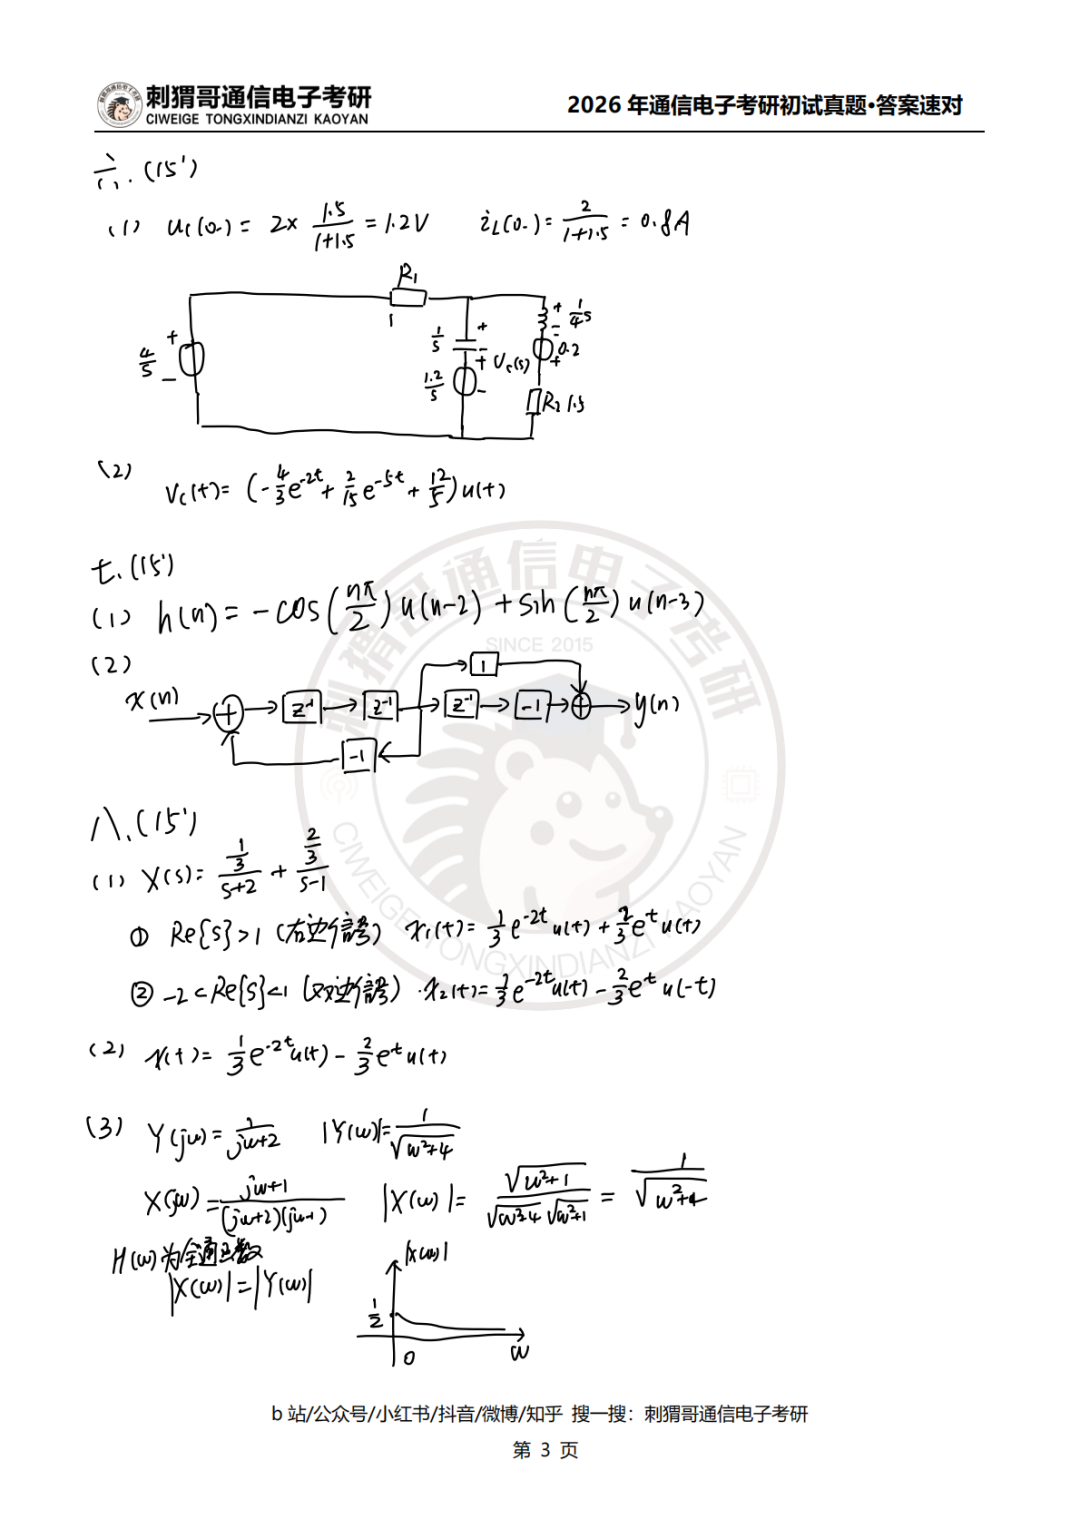 刺猬哥通信电子考研
CIWEIGE TONGXINDIANZI KAOYAN
2026 年通信电子考研初试真题•答案速对
六.(15')
(1) uc(0-) = 2× 1.5/(1+1.5) = 1.2V iL(0-) = 2/(1+1.5) = 0.8A
R1
1
+ 4/s -
1/s + -
+ 1.2/s -
Vc(s)
+ 1/4 s -
0.2 +
R2 1.5
(2)
Vc(t) = (-4/3 e^-2t + 2/15 e^-5t + 12/5) u(t)
七.(15')
(1) h(n) = -cos(nπ/2) u(n-2) + sin(nπ/2) u(n-3)
(2)
1
x(n) + z^-1 z^-1 z^-1 -1 + y(n)
-1
八.(15')
(1) X(s) = (1/3)/(s+2) + (2/3)/(s-1)
① Re{s}>1 (右边信号) x1(t) = 1/3 e^-2t u(t) + 2/3 e^t u(t)
② -2<Re{s}<1 (双边信号) x2(t) = 1/3 e^-2t u(t) - 2/3 e^t u(-t)
(2) x(t) = 1/3 e^-2t u(t) - 2/3 e^t u(t)
(3) Y(jω) = 1/(jω+2) |Y(ω)| = 1/√(ω²+4)
X(jω) = (jω+1)/((jω+2)(jω-1)) |X(ω)| = √(ω²+1)/(√(ω²+4) √(ω²+1)) = 1/√(ω²+4)
H(ω)为全通函数
|X(ω)| = |Y(ω)|
|X(ω)|
1/2
0
ω
刺猬哥通信电子考研
SINCE 2015
CIWEIGE TONGXINDIANZI KAOYAN
b 站/公众号/小红书/抖音/微博/知乎 搜一搜：刺猬哥通信电子考研
第 3 页